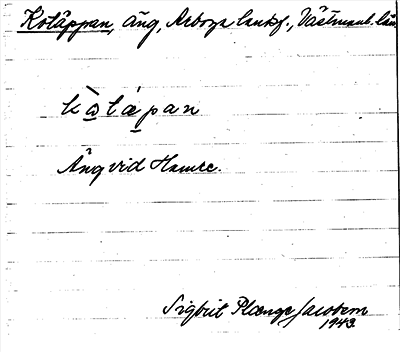 Kotäppan, äng, Arboga landsf., Västmanl. län
kò̱tǽpan
Äng vid Hamre.
Sigbrit Plænge Jacobson
1943